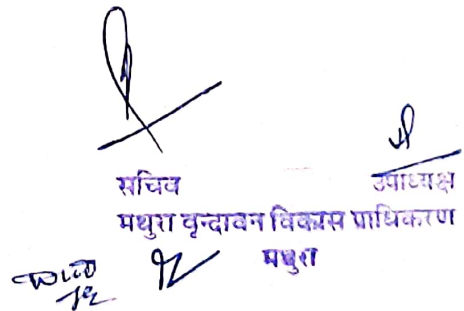 सचिव उपाध्यक्ष
मथुरा वृन्दावन विकास प्राधिकरण
मथुरा